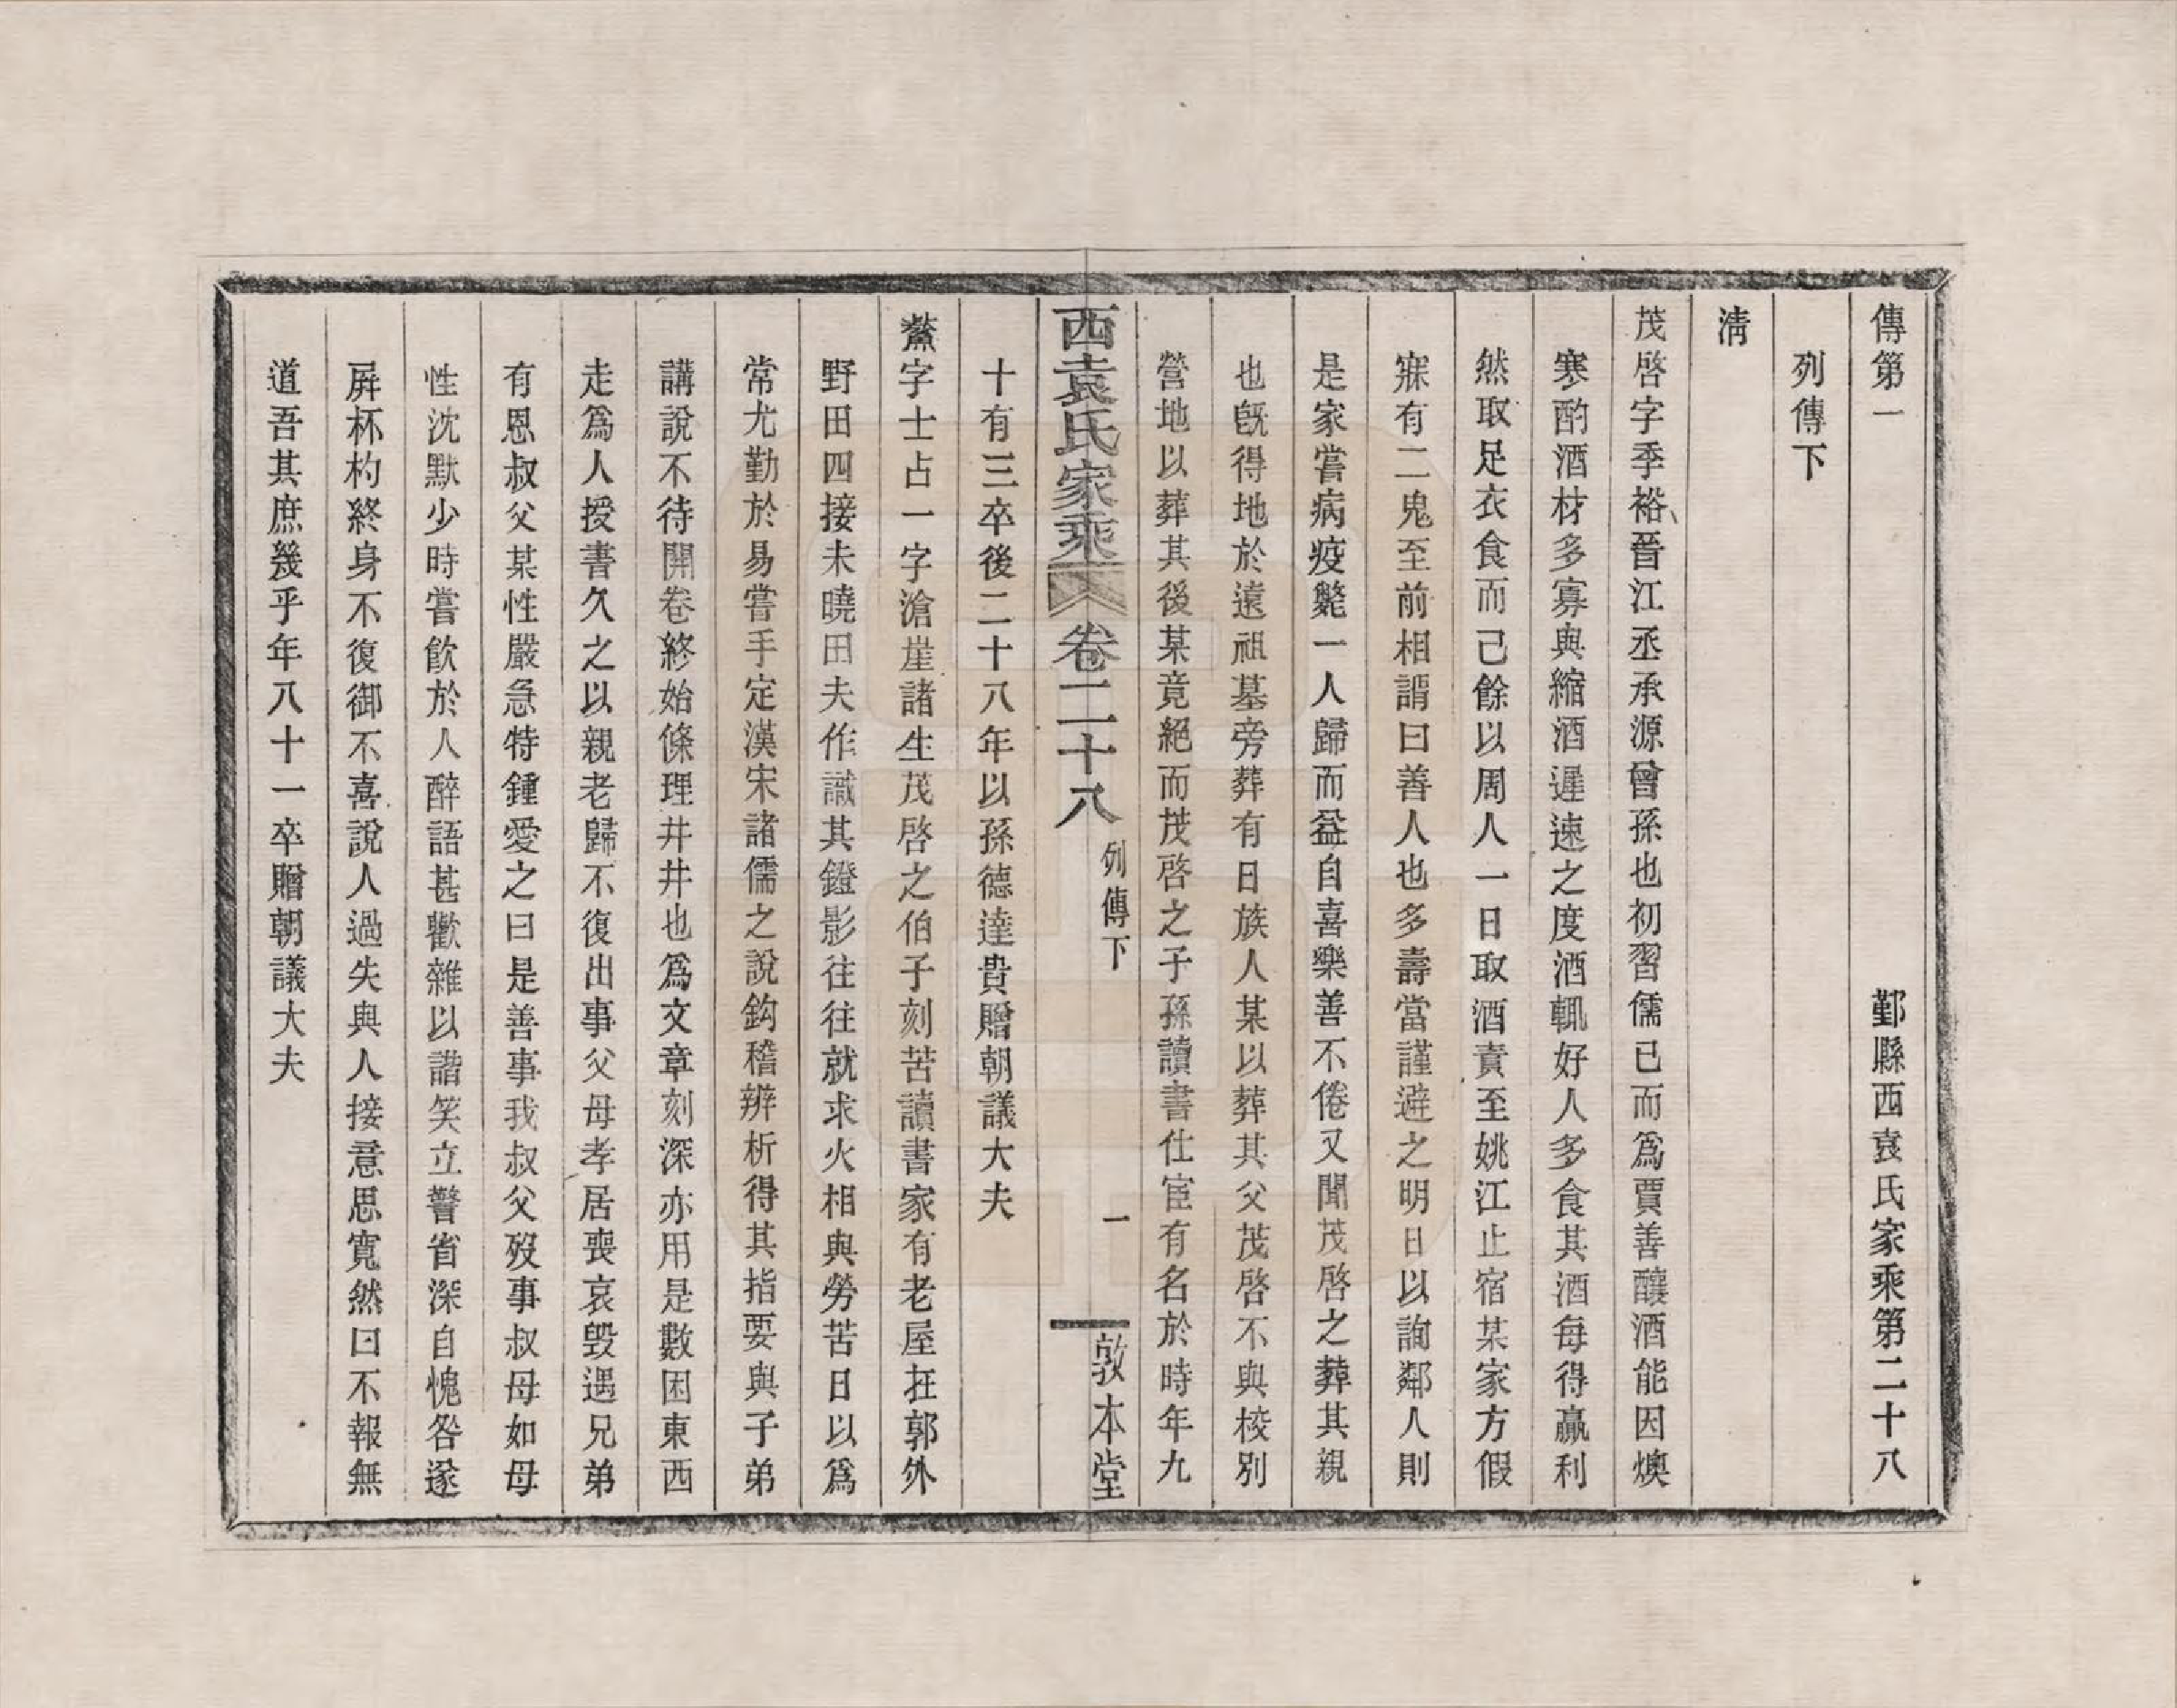 傳第一 鄞縣西袁氏家乘第二十八
列傳下
淸
茂啓字季裕晉江丞承源曾孫也初習儒已而爲賈善釀酒能因燠
寒酌酒材多寡與縮酒遲速之度酒輒好人多食其酒每得贏利
然取足衣食而已餘以周人一日取酒責至姚江止宿某家方假
寐有二鬼至前相謂曰善人也多壽當謹避之明日以詢鄰人則
是家嘗病疫斃一人歸而益自喜樂善不倦又聞茂啓之葬其親
也旣得地於遠祖墓旁葬有日族人某以葬其父茂啓不與校別
營地以葬其後某竟絕而茂啓之子孫讀書仕宦有名於時年九
西袁氏家乘 卷二十八 列傳下 一 敦本堂
十有三卒後二十八年以孫德達貴贈朝議大夫
字士占一字滄崖諸生茂啓之伯子刻苦讀書家有老屋在郭外
野田四接未曉田夫作誠其鐙影往往就求火相與勞苦日以爲
常尤勤於易嘗手定漢宋諸儒之說鈎稽辨析得其指要與子弟
講說不待開卷終始條理井井也爲文章刻深亦用是數困東西
走爲人授書久之以親老歸不復出事父母孝居喪哀毀遇兄弟
有恩叔父某性嚴急特鍾愛之曰是善事我叔父歿事叔母如母
性沈默少時嘗飮於人醉語甚歡雜以諧笑立警省深自愧咎遂
屛杯杓終身不復御不喜說人過失與人接意思寬然曰不報無
道吾其庶幾乎年八十一卒贈朝議大夫